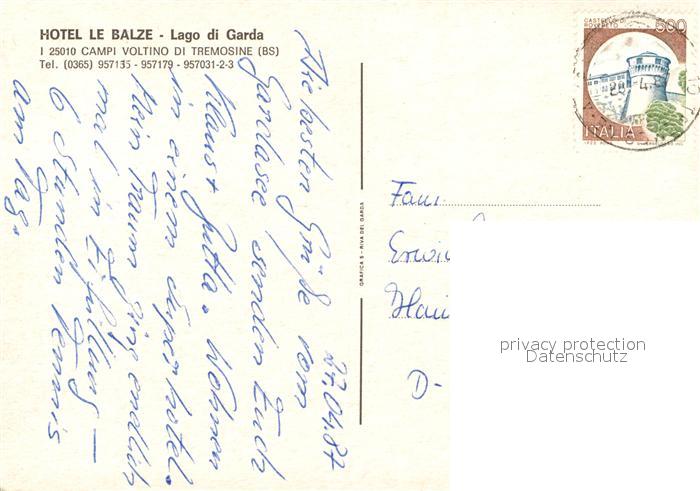 HOTEL LE BALZE - Lago di Garda
I 25010 CAMPI VOLTINO DI TREMOSINE (BS)
Tel. (0365) 957135 - 957179 - 957031-2-3
27.04.87
Die besten Grüße vom
Gardasee senden Euch
Klaus + Jutta. Wohnen
in einem Superhotel.
Mein Traum ging endlich
mal in Erfüllung –
6 Stunden Tennis
am Tag.
GRAFICA 5 - RIVA DEL GARDA
CASTELLO
ROVERETO
500
ITALIA
Fam.
Erwi
D-
privacy protection
Datenschutz